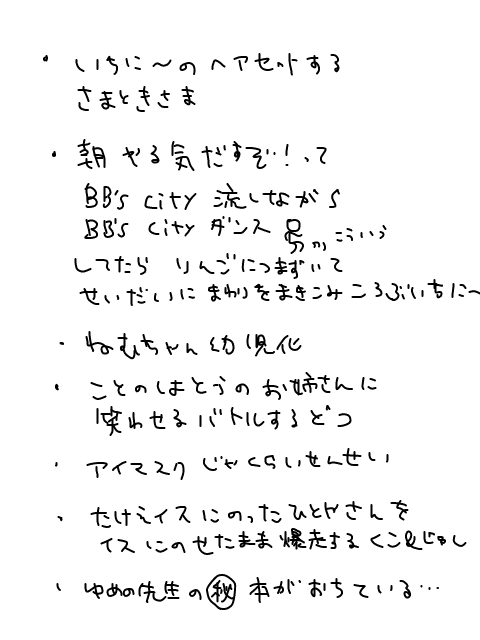 ・いちに〜のヘアセットする
さまときさま
・朝やる気だすぞ!って
BB's City 流しながら
BB's City ダンス こういう
してたら りんごにつまずいて
せいだいに まわりをまきこみ ころぶいちに〜
・ねむちゃん幼児化
・ことのはとうの お姉さんに
笑わせるバトルするどつ
・アイマスク じゃくらいせんせい
・たけえイスにのったひとやさんを
イスにのせたまま爆走するくこ&じゅし
・ゆめの先生の㊙本がおちている…